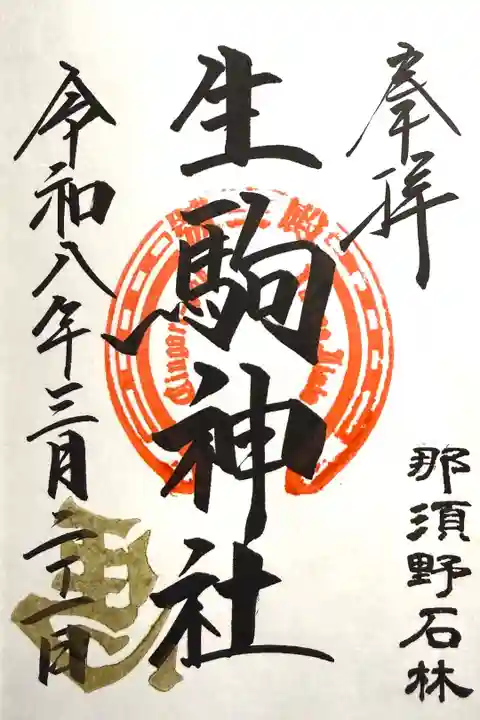 奉拝
生駒神社
令和八年三月二十一日
那須野石林